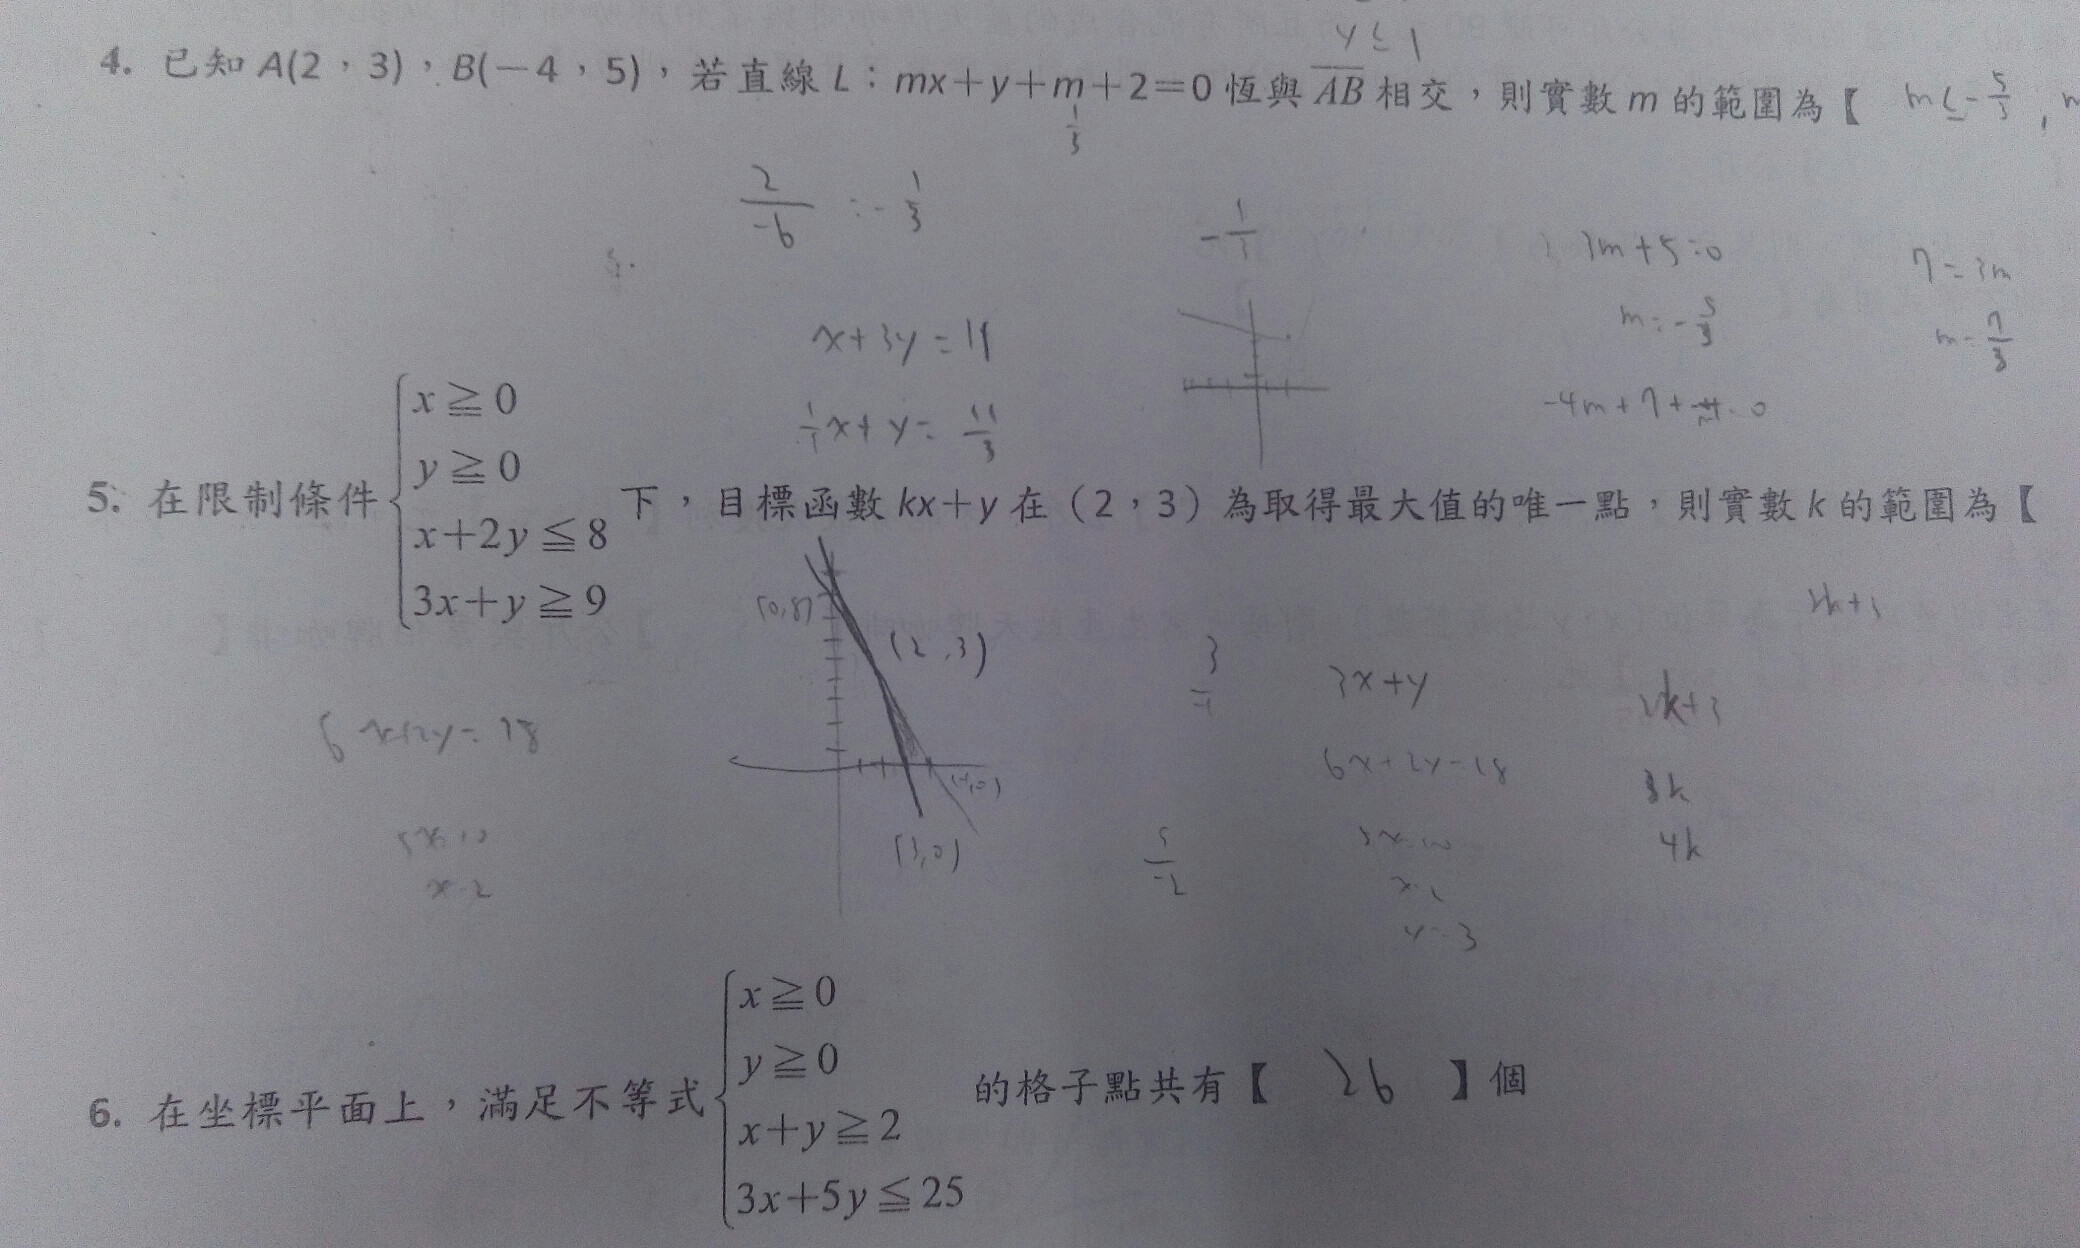 y≤1
4. 已知A(2，3)，B(－4，5)，若直線L：mx＋y＋m＋2＝0恆與AB相交，則實數m的範圍為【 m≤-5/3 , m
1/3
2/-6 = -1/3
-1/3
3m+5=0
7=3m
x+3y=11
m=-5/3
m=7/3
1/3x+y=11/3
-4m+7+m=0
5. 在限制條件{x≧0
y≧0
x＋2y≦8
3x＋y≧9 下，目標函數kx＋y在（2，3）為取得最大值的唯一點，則實數k的範圍為【
2k+3
(0,8)
(2,3)
3/-1
3x+y
2k+3
x+2y=
6x+2y=18
3k
4k
(4,0)
(3,0)
5x=10
x=2
y=3
6. 在坐標平面上，滿足不等式{x≧0
y≧0
x＋y≧2
3x＋5y≦25 的格子點共有【 26 】個